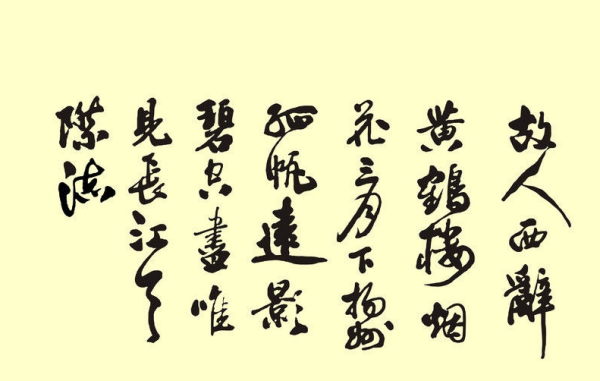 故人西辭
黄鶴樓烟
花三月下揚州
孤帆遠影
碧空盡唯
見長江天
際流